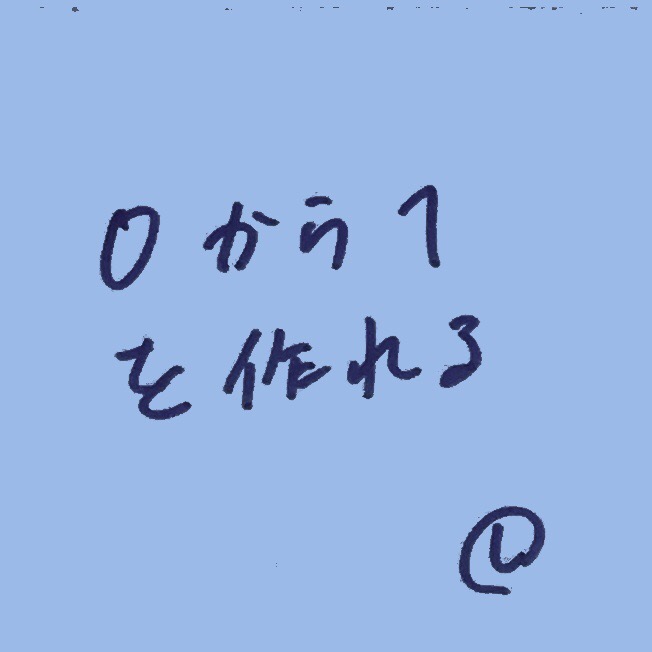 0から1
を作れる